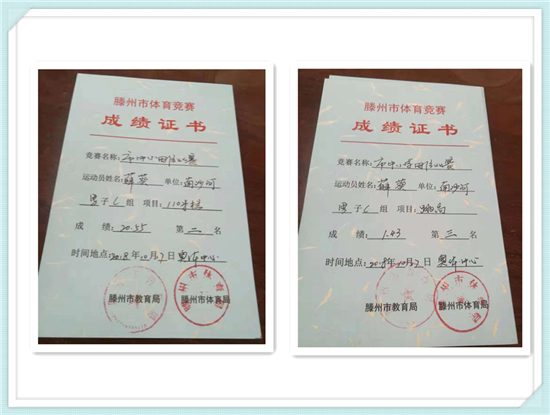 滕州市体育竞赛
成绩证书
竞赛名称:市中小田径比赛
运动员姓名 薛英 单位:南沙河
男子C组 项目:110米栏
成 绩:20.55 第二名
时间地点:2018年10月7日奥体中心
滕州市教育局 滕州市体育局
滕州市体育竞赛
成绩证书
竞赛名称:市中小学田径比赛
运动员姓名 薛英 单位:南沙河
男子C组 项目:跳高
成 绩:1.43 第三名
时间地点:2018年10月7日奥体中心
滕州市教育局 滕州市体育局